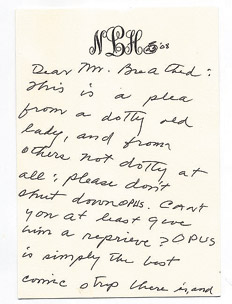 NLH '08
Dear Mr. Breathed:
This is a plea
from a dotty old
lady, and from
others not dotty at
all; please don't
shut down OPUS. Can't
you at least give
him a reprieve? OPUS
is simply the best
comic strip there is, and